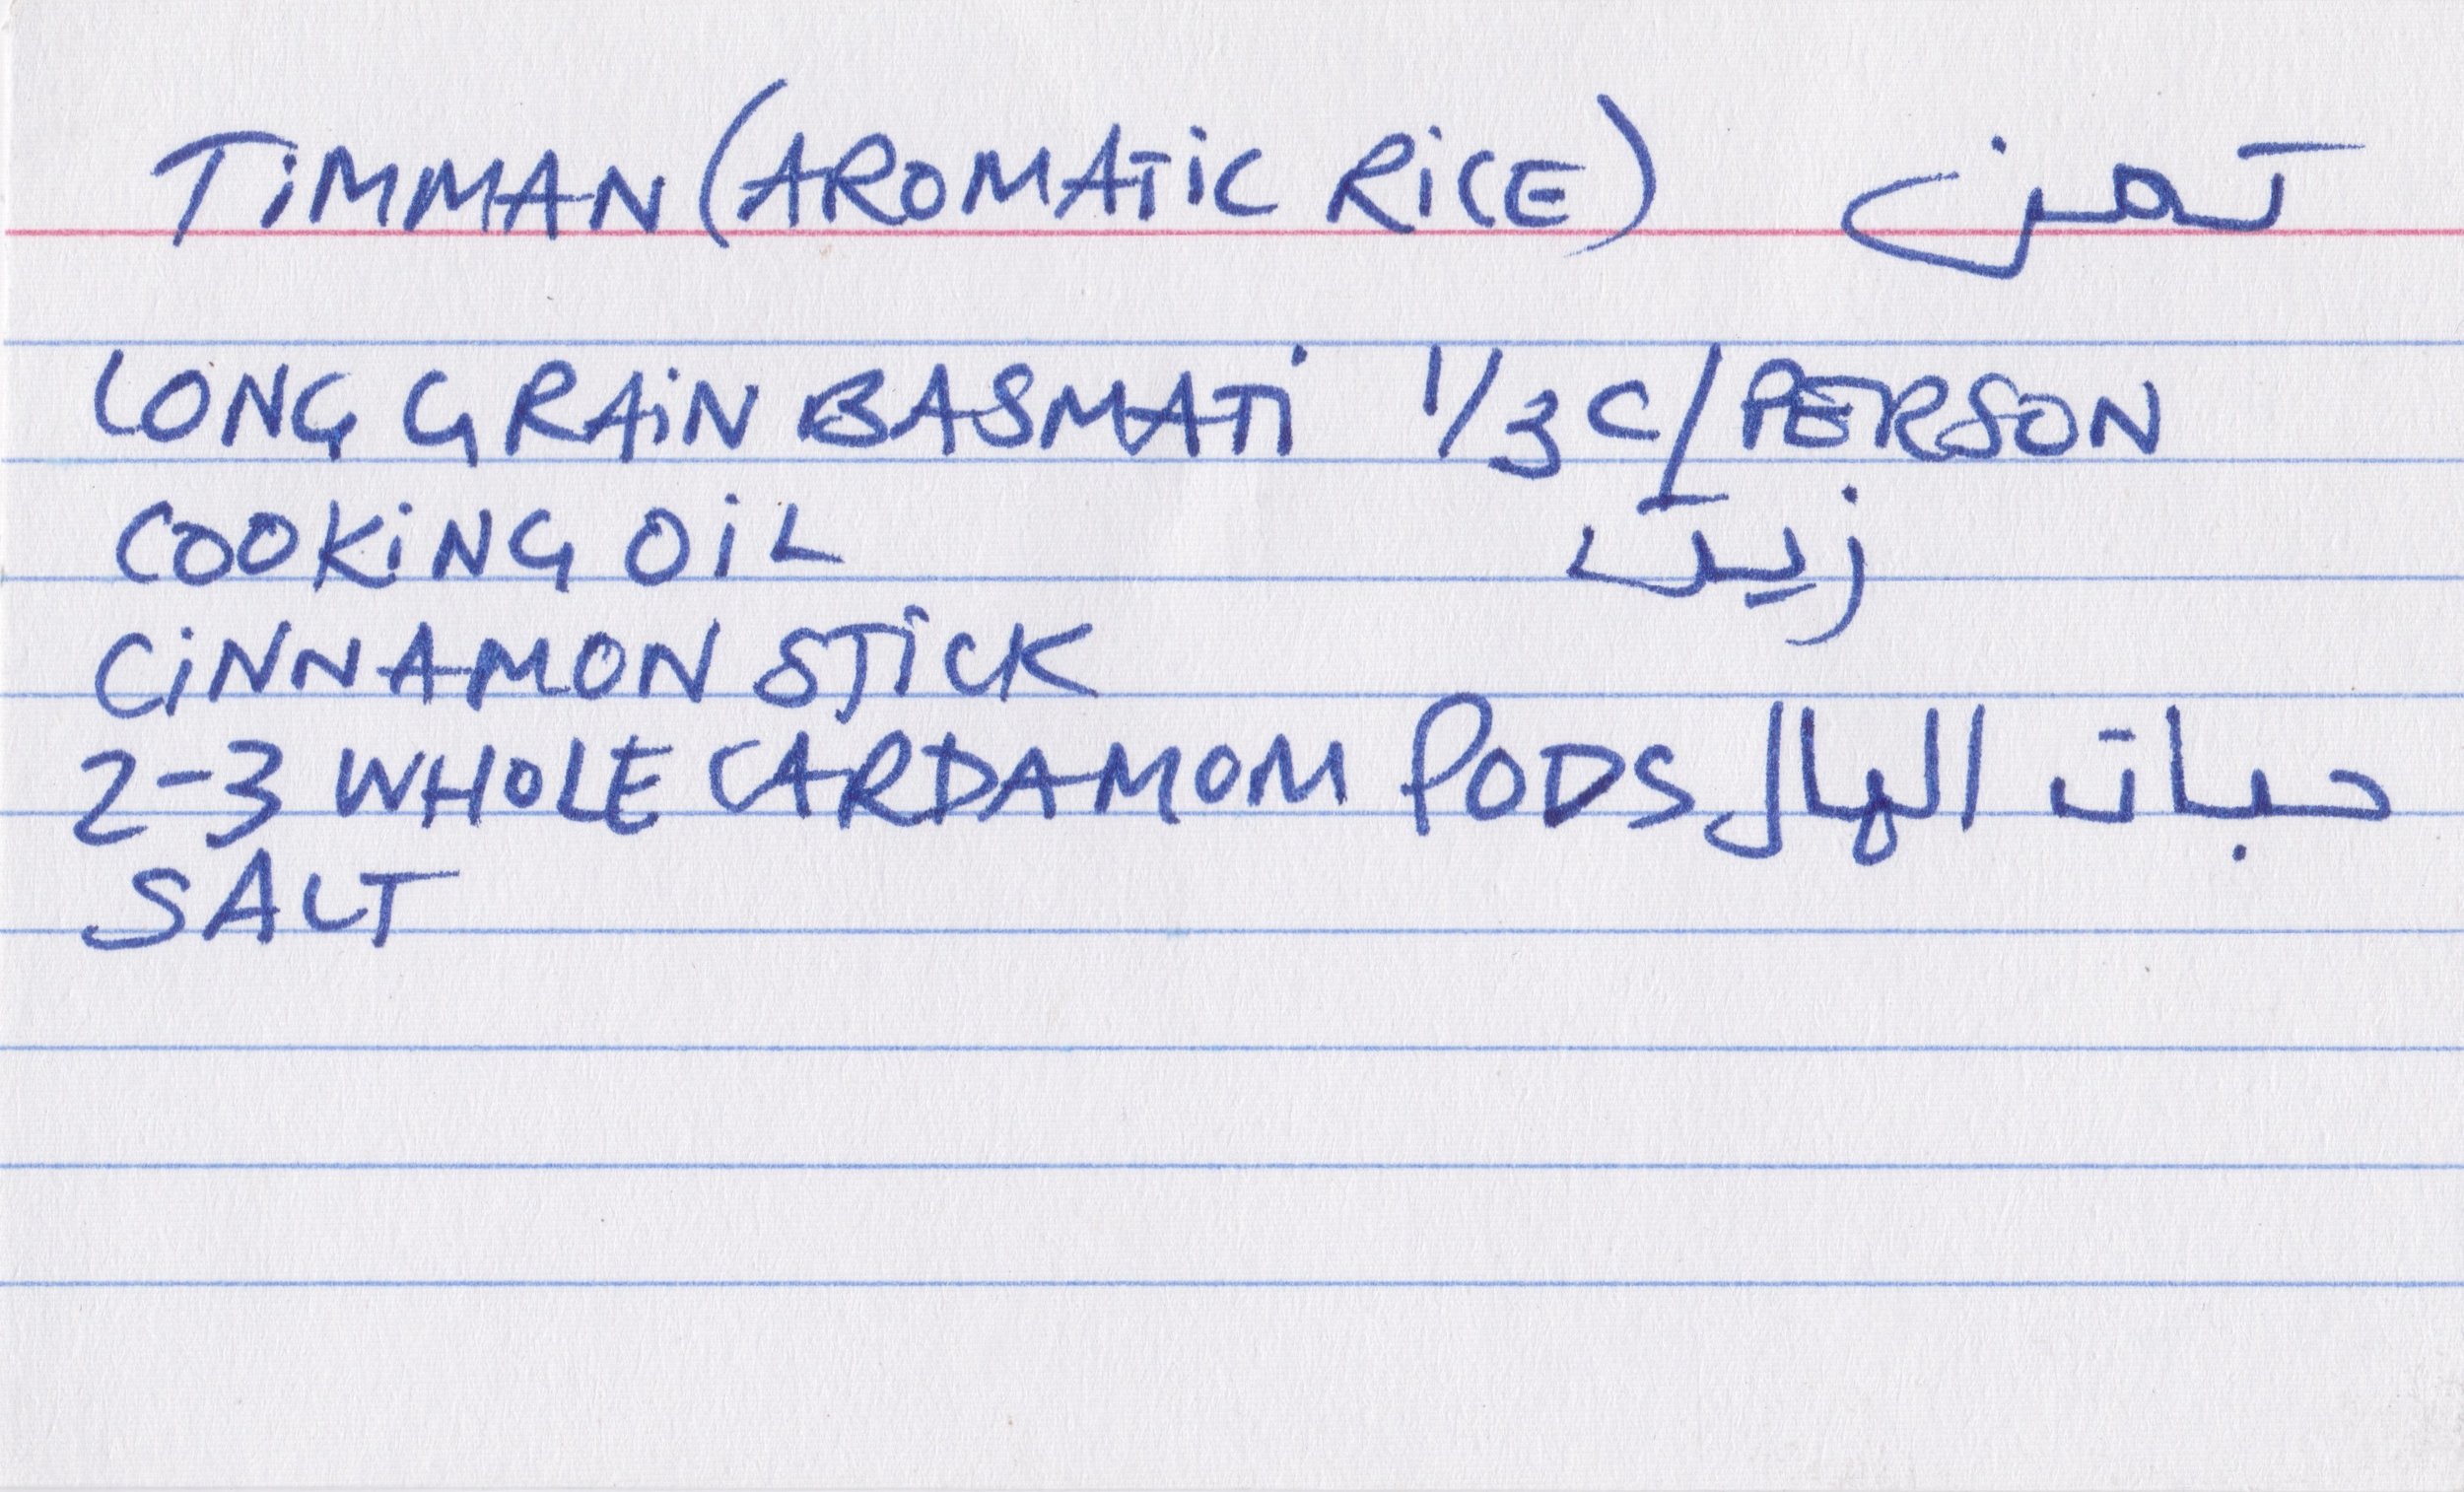 TiMMAN (AROMATiC RiCE) تمن
LONG GRAiN BASMATi 1/3 C/PERSON
COOKiNG OiL زيت
CiNNAMON STiCK
2-3 WHOLE CARDAMOM PODS حبات الهال
SALT